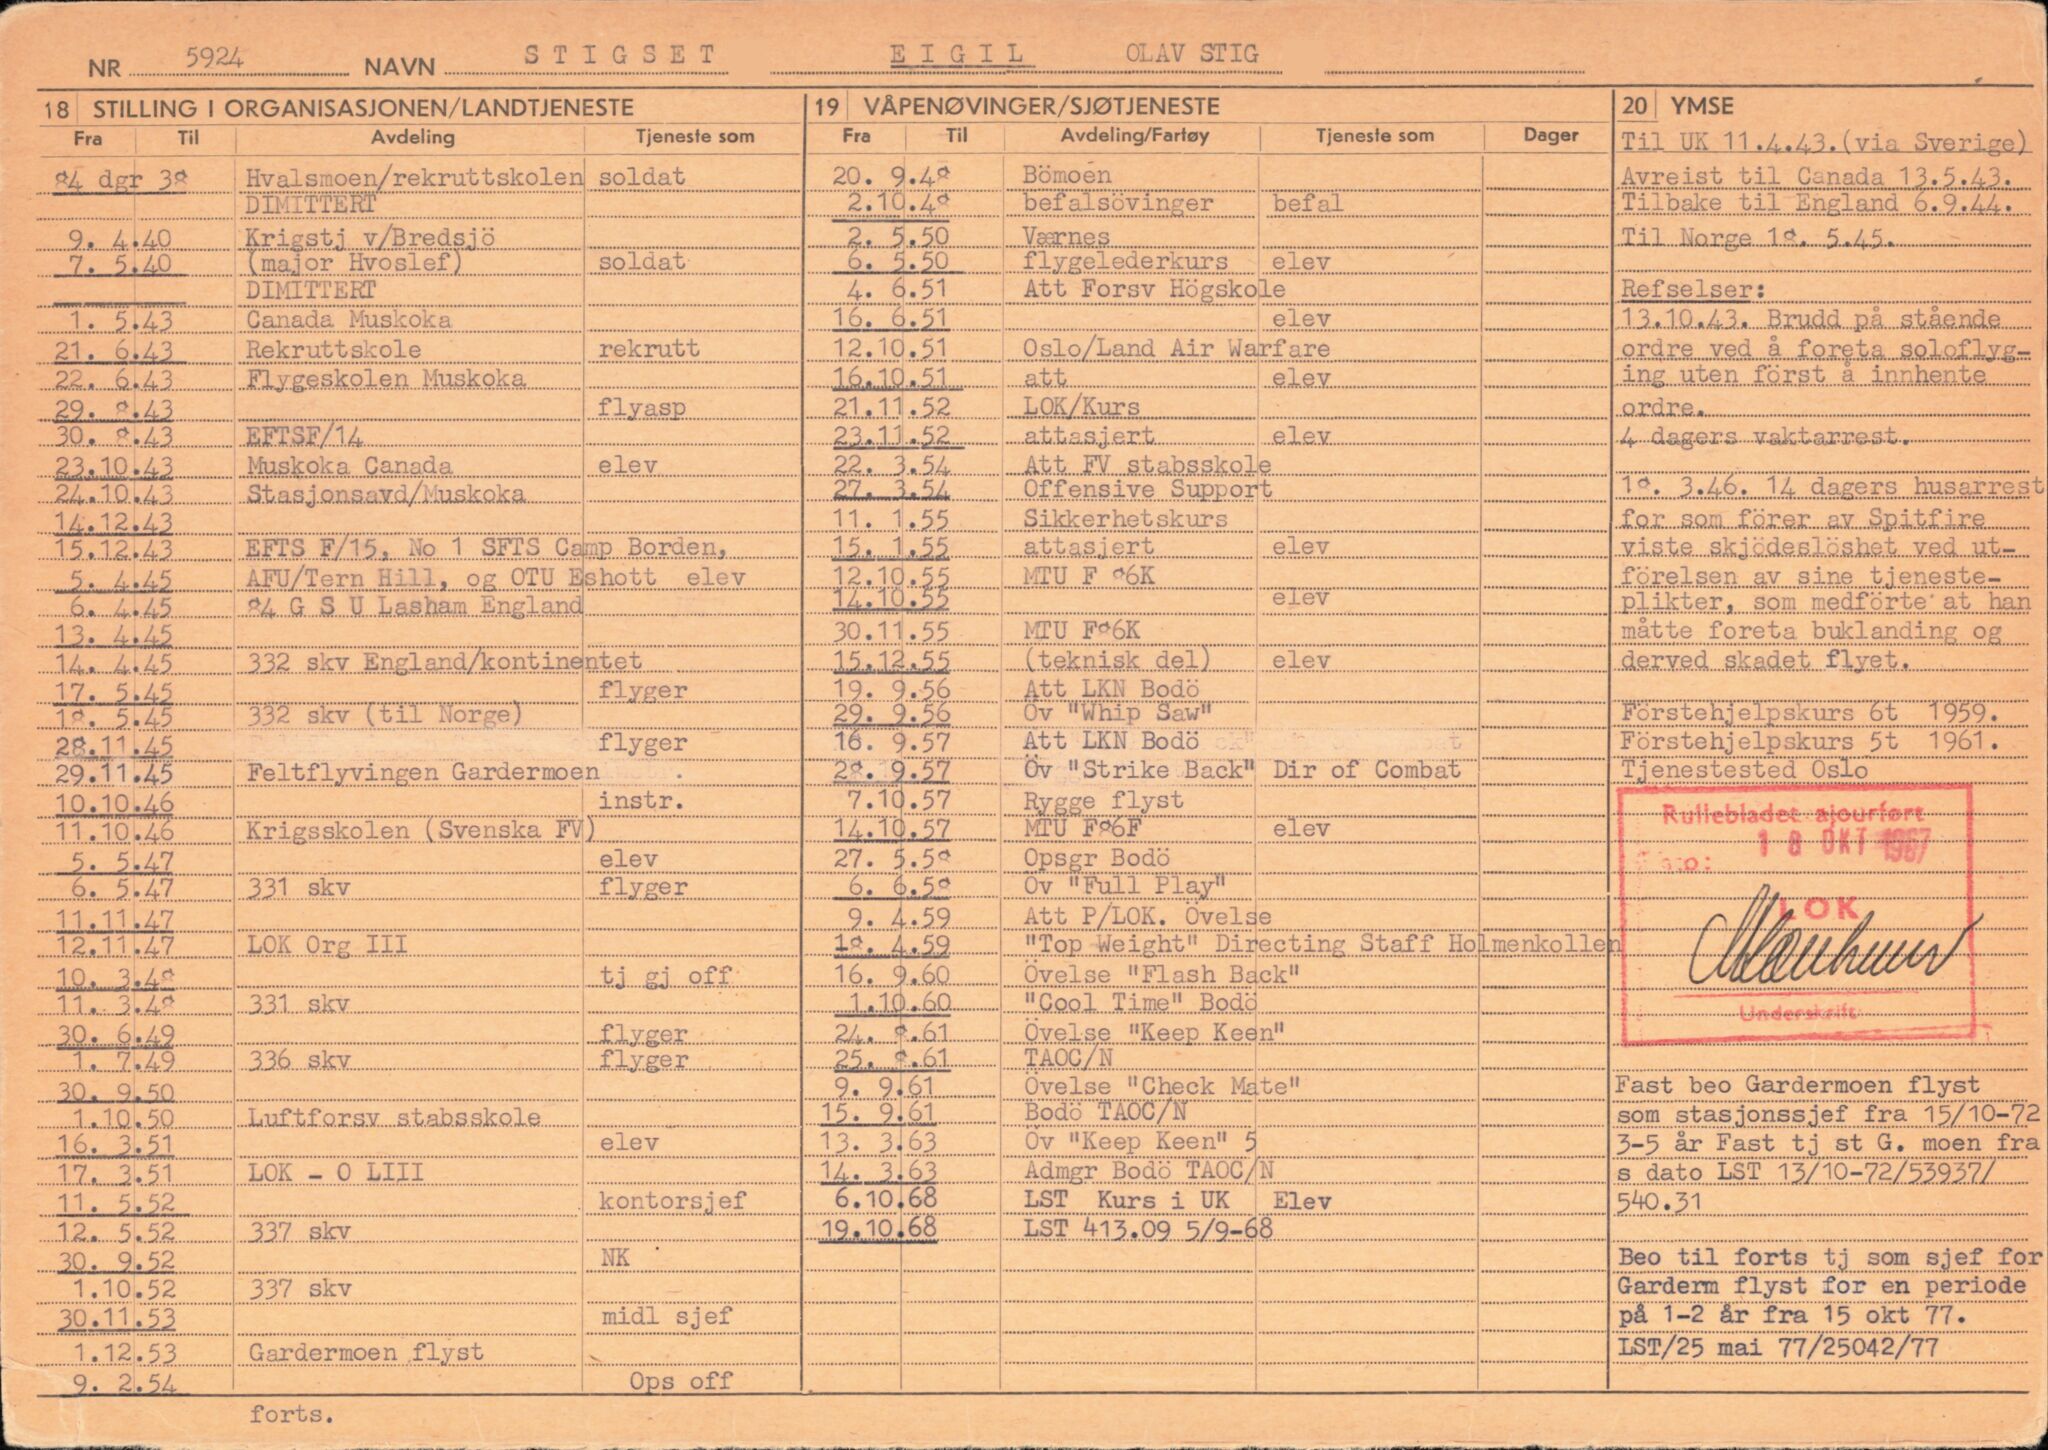 NR 5924 NAVN STIGSET EIGIL OLAV STIG
18 STILLING I ORGANISASJONEN/LANDTJENESTE
Fra Til Avdeling Tjeneste som
84 dgr 38 Hvalsmoen/rekruttskolen soldat
DIMITTERT
9. 4.40 Krigstj v/Bredsjö
7. 5.40 (major Hvoslef) soldat
DIMITTERT
1. 5.43 Canada Muskoka
21. 6.43 Rekruttskole rekrutt
22. 6.43 Flygeskolen Muskoka
29. 8.43 flyasp
30. 8.43 EFTSF/14
23.10.43 Muskoka Canada elev
24.10.43 Stasjonsavd/Muskoka
14.12.43
15.12.43 EFTS F/15, No 1 SFTS Camp Borden,
5. 4.45 AFU/Tern Hill, og OTU Eshott elev
6. 4.45 84 G S U Lasham England
13. 4.45
14. 4.45 332 skv England/kontinentet
17. 5.45 flyger
18. 5.45 332 skv (til Norge)
28.11.45 flyger
29.11.45 Feltflyvingen Gardermoen
10.10.46 instr.
11.10.46 Krigsskolen (Svenska FV)
5. 5.47 elev
6. 5.47 331 skv flyger
11.11.47
12.11.47 LOK Org III
10. 3.48 tj gj off
11. 3.48 331 skv
30. 6.49 flyger
1. 7.49 336 skv flyger
30. 9.50
1.10.50 Luftforsv stabsskole
16. 3.51 elev
17. 3.51 LOK - O LIII
11. 5.52 kontorsjef
12. 5.52 337 skv
30. 9.52 NK
1.10.52 337 skv
30.11.53 midl sjef
1.12.53 Gardermoen flyst
9. 2.54 Ops off
forts.
19 VÅPENØVINGER/SJØTJENESTE
Fra Til Avdeling/Fartøy Tjeneste som Dager
20. 9.48 Bömoen
2.10.48 befalsövinger befal
2. 5.50 Værnes
6. 5.50 flygelederkurs elev
4. 6.51 Att Forsv Högskole
16. 6.51 elev
12.10.51 Oslo/Land Air Warfare
16.10.51 att elev
21.11.52 LOK/Kurs
23.11.52 attasjert elev
22. 3.54 Att FV stabsskole
27. 3.54 Offensive Support
11. 1.55 Sikkerhetskurs
15. 1.55 attasjert elev
12.10.55 MTU F 86K
14.10.55 elev
30.11.55 MTU F86K
15.12.55 (teknisk del) elev
19. 9.56 Att LKN Bodö
29. 9.56 Öv "Whip Saw"
16. 9.57 Att LKN Bodö
28. 9.57 Öv "Strike Back" Dir of Combat
7.10.57 Rygge flyst
14.10.57 MTU F86F elev
27. 5.58 Opsgr Bodö
6. 6.58 Öv "Full Play"
9. 4.59 Att P/LOK. Övelse
18. 4.59 "Top Weight" Directing Staff Holmenkollen
16. 9.60 Övelse "Flash Back"
1.10.60 "Cool Time" Bodö
24. 8.61 Övelse "Keep Keen"
25. 8.61 TAOC/N
9. 9.61 Övelse "Check Mate"
15. 9.61 Bodö TAOC/N
13. 3.63 Öv "Keep Keen" 5
14. 3.63 Admgr Bodö TAOC/N
6.10.68 LST Kurs i UK Elev
19.10.68 LST 413.09 5/9-68
20 YMSE
Til UK 11.4.43.(via Sverige)
Avreist til Canada 13.5.43.
Tilbake til England 6.9.44.
Til Norge 18. 5.45.
Refselser:
13.10.43. Brudd på stående
ordre ved å foreta soloflyg-
ing uten först å innhente
ordre.
4 dagers vaktarrest.
18. 3.46. 14 dagers husarrest
for som förer av Spitfire
viste skjödeslöshet ved ut-
förelsen av sine tjeneste-
plikter, som medförte at han
måtte foreta buklanding og
derved skadet flyet.
Förstehjelpskurs 6t 1959.
Förstehjelpskurs 5t 1961.
Tjenestested Oslo
Rullebladet ajourført
18 OKT 1967
LOK
Underskrift
Fast beo Gardermoen flyst
som stasjonssjef fra 15/10-72
3-5 år Fast tj st G. moen fra
s dato LST 13/10-72/53937/
540.31
Beo til forts tj som sjef for
Garderm flyst for en periode
på 1-2 år fra 15 okt 77.
LST/25 mai 77/25042/77